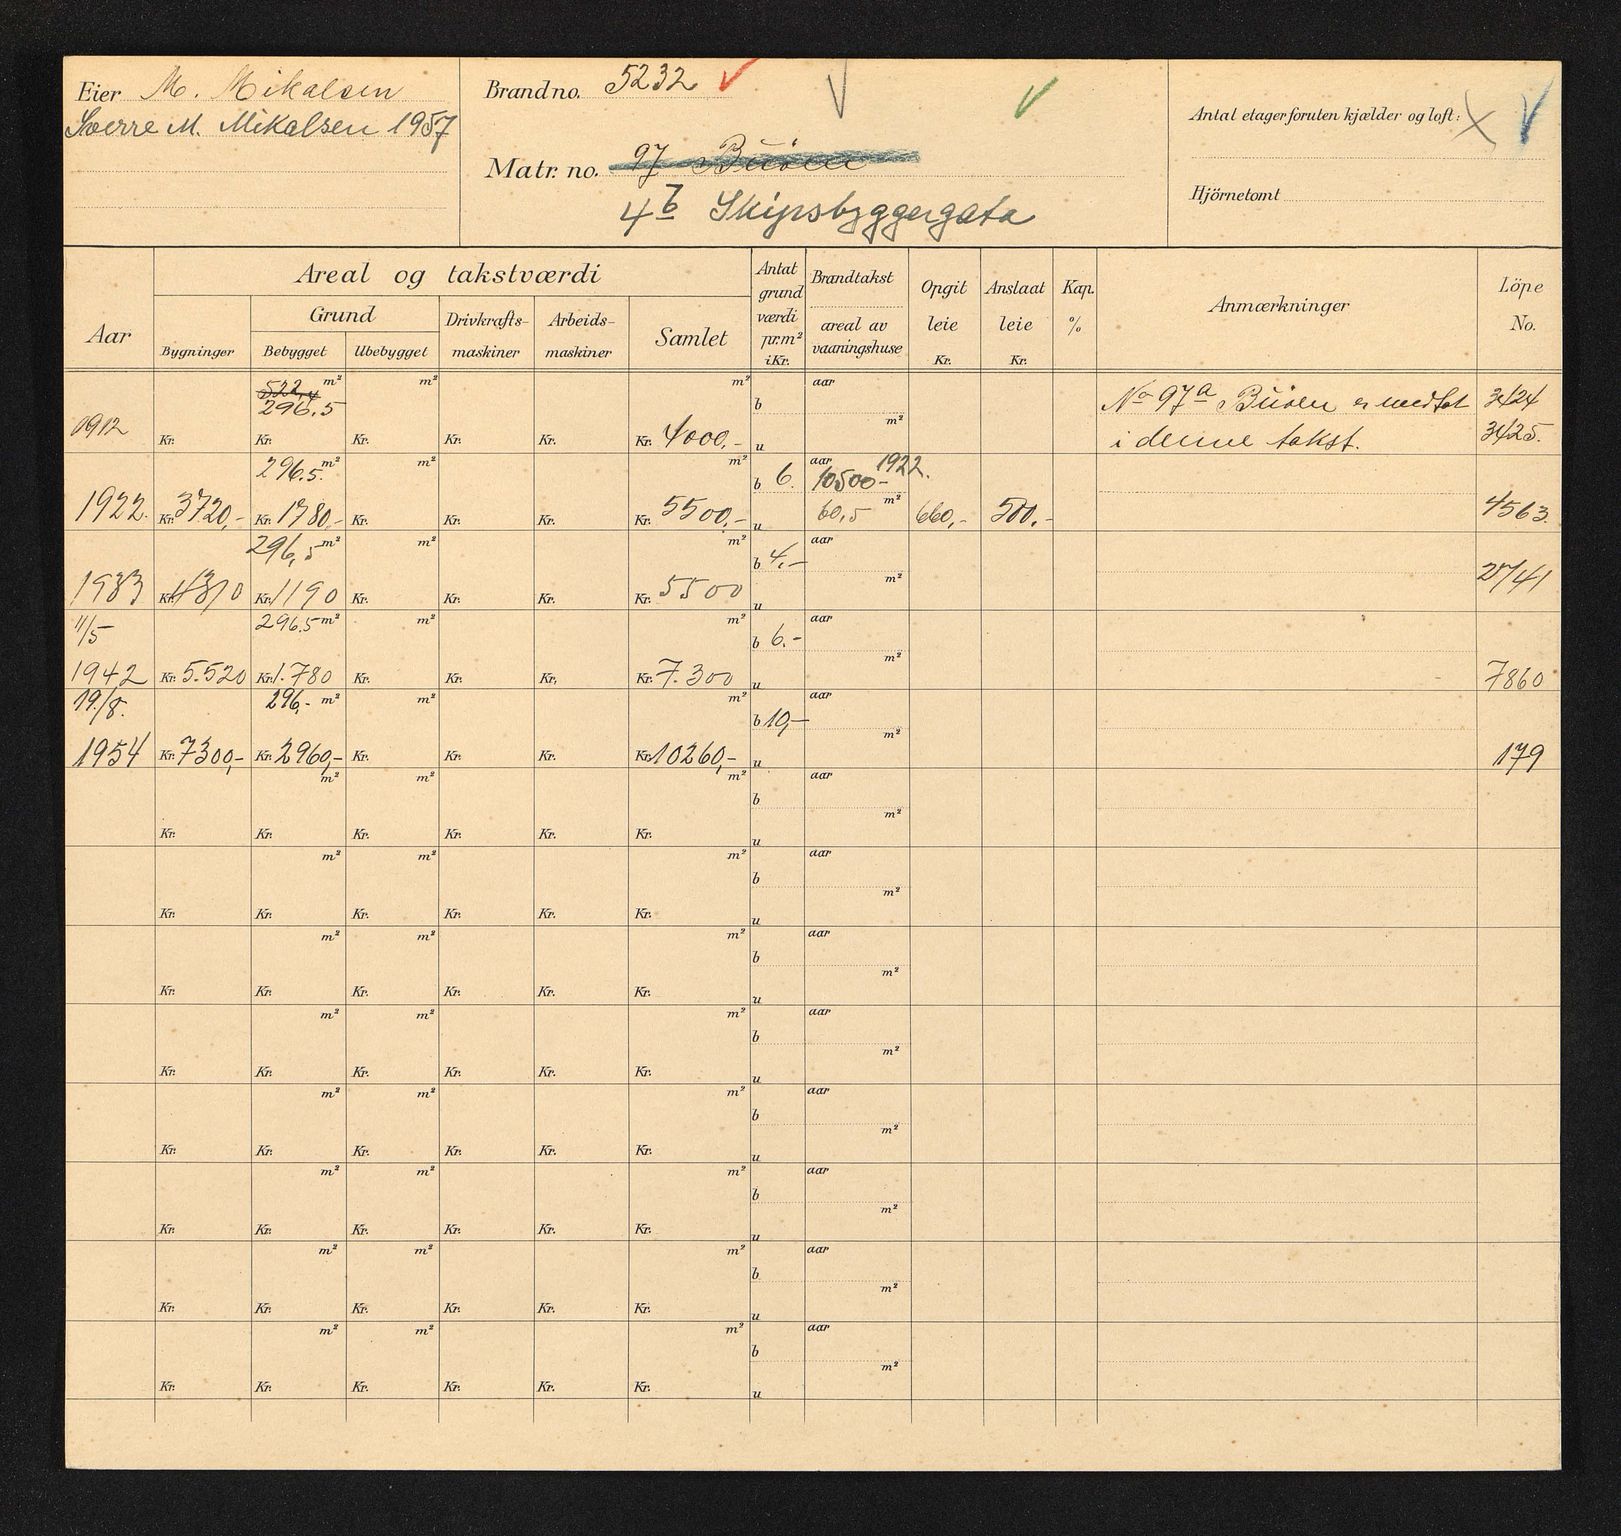 Eier M. Mikalsen
Sverre M. Mikalsen 1957
Brandno. 5232
Matr. no. 97 Buöen
4b Skipsbyggergata
Antal etager foruten kjælder og loft:
Hjörnetomt
Aar
Areal og takstværdi
Bygninger
Grund
Bebygget
Ubebygget
Drivkrafts-
maskiner
Arbeids-
maskiner
Samlet
Antat
grund
værdi
pr.m²
i Kr.
Brandtakst
areal av
vaaningshuse
Opgit
leie
Kr.
Anslaat
leie
Kr.
Kap.
%
Anmærkninger
Löpe
No.
522,4 m² m² m² aar
296.5
b
m²
1912 Kr. Kr. Kr. Kr. Kr. Kr. 4000,- u
No 97a Buöen er medtat 3424
i denne takst. 3425.
296.5. m² m² m² aar 1922.
b 6. 10500-
m²
1922. Kr. 3720,- Kr. 1780,- Kr. Kr. Kr. Kr. 5500,- u 60,5 660,- 500,- 4563.
296,5 m² m² m² aar
b 4,-
m²
1933 Kr. 4310 Kr. 1190 Kr. Kr. Kr. Kr. 5500 u 2741
11/5 296.5 m² m² m² aar
b 6.-
m²
1942 Kr. 5.520 Kr. 1.780 Kr. Kr. Kr. Kr. 7.300 u 7860
19./8. 296,- m² m² m² aar
b 10,-
m²
1954 Kr. 7300,- Kr. 2960,- Kr. Kr. Kr. Kr. 10260,- u 179
m² m² m² aar
b
m²
Kr. Kr. Kr. Kr. Kr. Kr. u
m² m² m² aar
b
m²
Kr. Kr. Kr. Kr. Kr. Kr. u
m² m² m² aar
b
m²
Kr. Kr. Kr. Kr. Kr. Kr. u
m² m² m² aar
b
m²
Kr. Kr. Kr. Kr. Kr. Kr. u
m² m² m² aar
b
m²
Kr. Kr. Kr. Kr. Kr. Kr. u
m² m² m² aar
b
m²
Kr. Kr. Kr. Kr. Kr. Kr. u
m² m² m² aar
b
m²
Kr. Kr. Kr. Kr. Kr. Kr. u
m² m² m² aar
b
m²
Kr. Kr. Kr. Kr. Kr. Kr. u